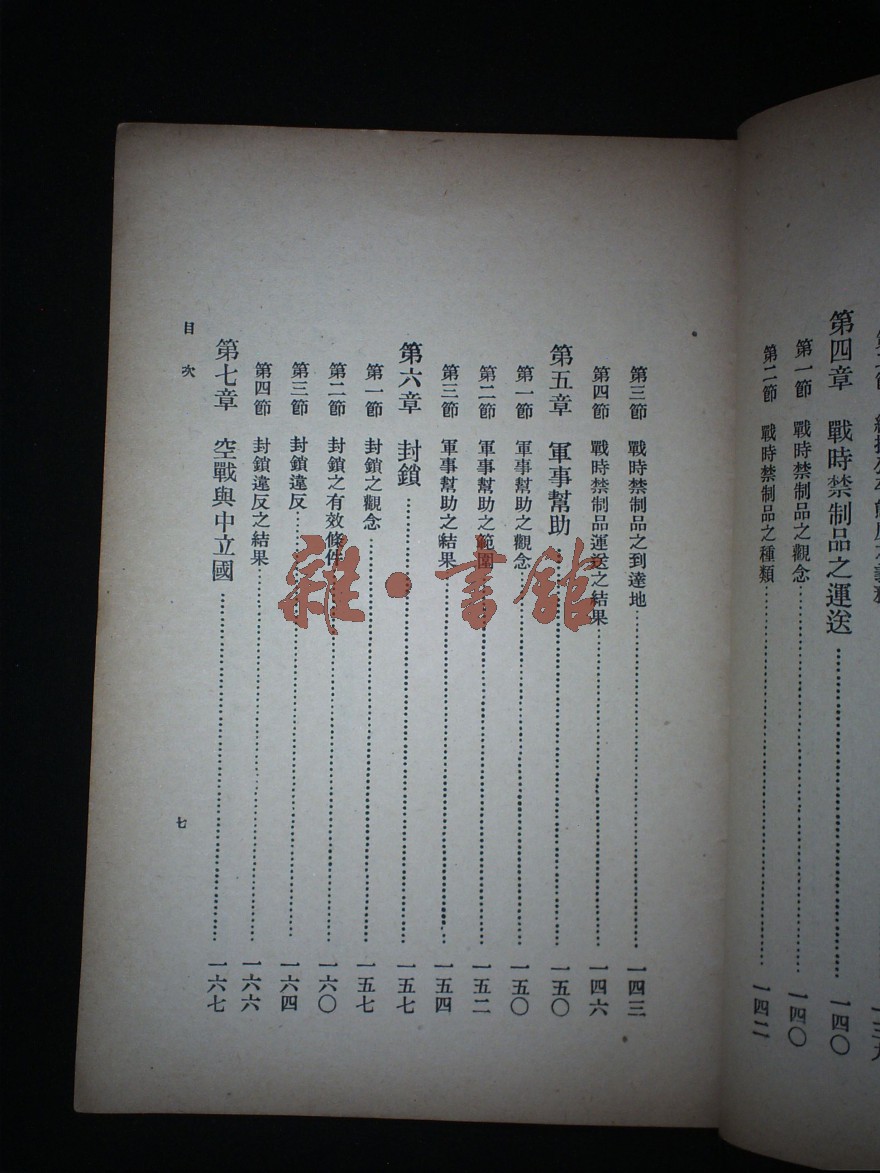 第四章　戰時禁制品之運送……一四〇
第一節　戰時禁制品之觀念……一四〇
第二節　戰時禁制品之種類……一四二
第三節　戰時禁制品之到達地……一四三
第四節　戰時禁制品運送之結果……一四六
第五章　軍事幫助……一五〇
第一節　軍事幫助之觀念……一五〇
第二節　軍事幫助之範圍……一五二
第三節　軍事幫助之結果……一五四
第六章　封鎖……一五七
第一節　封鎖之觀念……一五七
第二節　封鎖之有效條件……一六〇
第三節　封鎖違反……一六四
第四節　封鎖違反之結果……一六六
第七章　空戰與中立國……一六七
目次
七
雜·書館